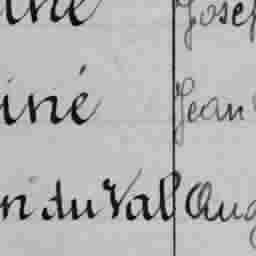 Jose
iné Jean
n du Val Aug